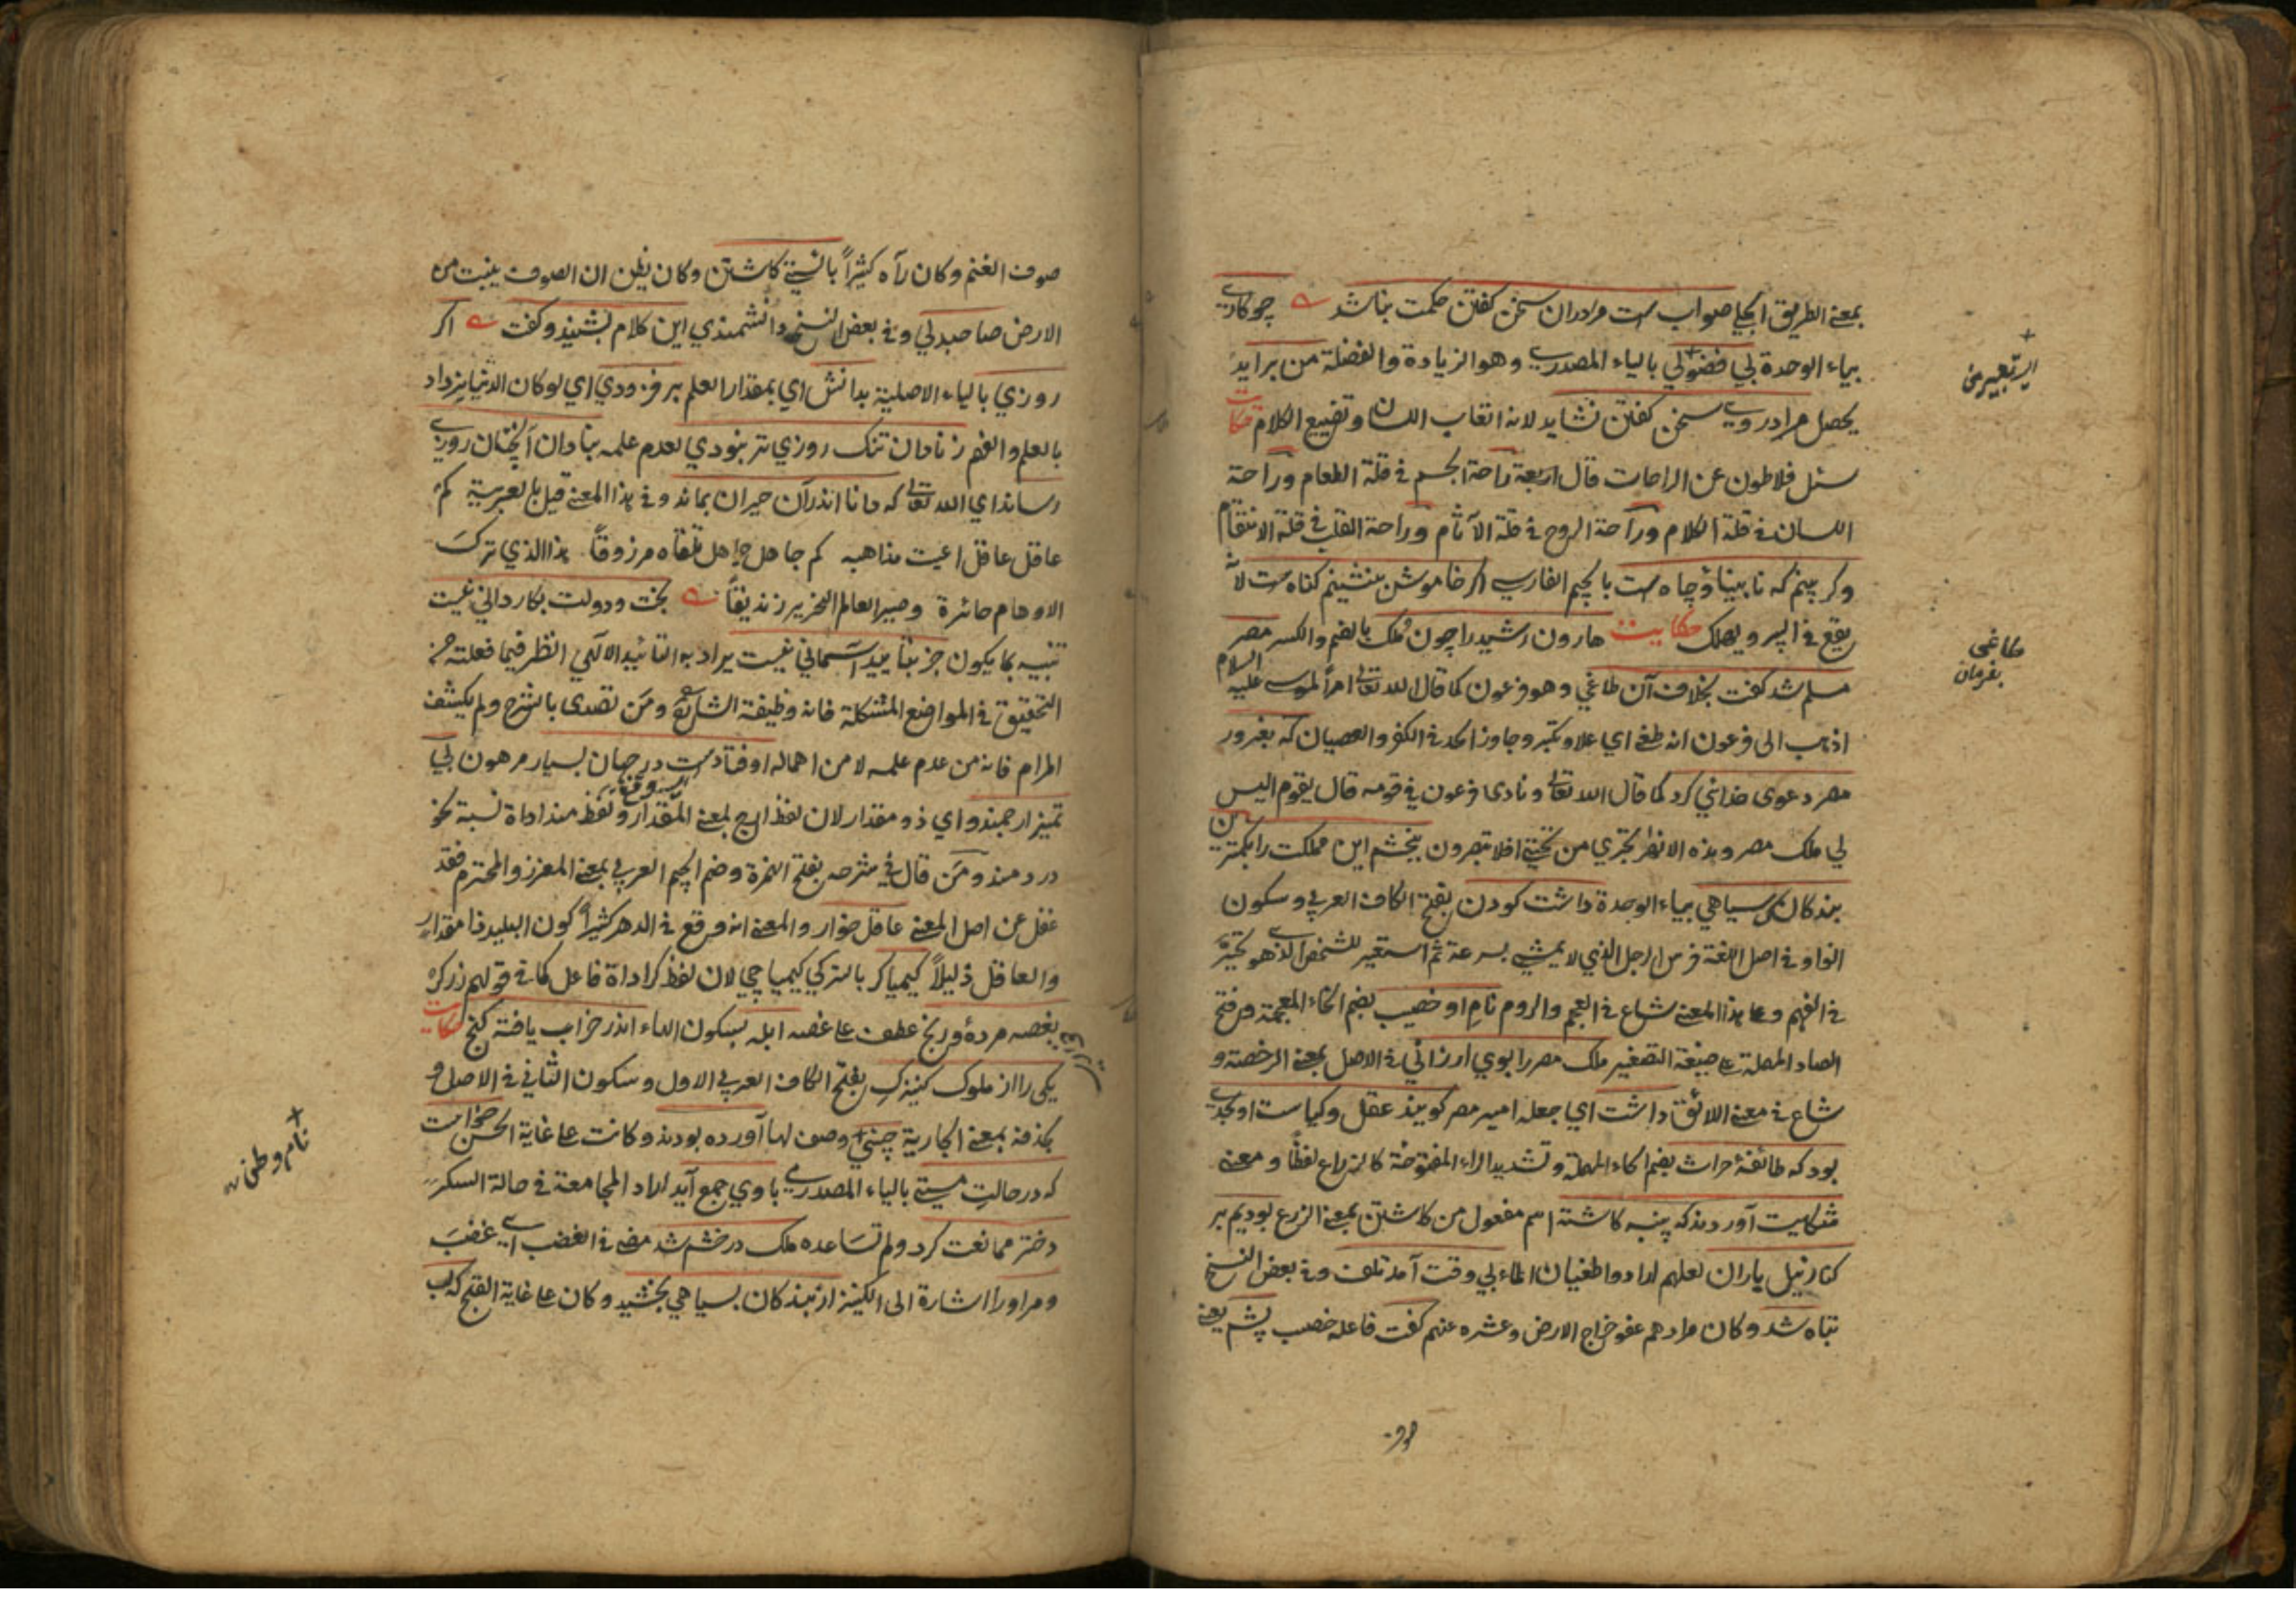 بمعنى الطريق الجلي صوابست مرادران سخن كفتن حكمت نباشد چو كاري
بياء الوحدة بي فضولي بالياء المصدري وهو الزيادة والفضلة من برايد
يحصل مرادروي سخن كفتن نشايد لانه اتعاب اللسان وتضييع الكلام حكايت
سئل فلاطون عن الراحات قال اربعة راحة الجسم في قلة الطعام وراحة
اللسان في قلة الكلام وراحة الروح في قلة الآثام وراحة القلب في قلة الانتقام
وكر بينم كه نابينا وچاهست بالجيم الفارسي اكر خاموش بنشينم كناهست لانه
يقع في البير ويهلك حكايت هارون رشيدرا چون ملك بالضم والكسر مصر
مسلم شد كفت بخلاف آن طاغي وهو فرعون كما قال الله تعالى امراً لموسى عليه السلام
اذهب الى فرعون انه طغى اي علا وتكبر وجاوز الحد في الكفر والعصيان كه بغرور
مصر دعوى خدائي كرد كما قال الله تعالى ونادى فرعون في قومه قال يقوم اليس
لي ملك مصر وهذه الانهر تجري من تحتي افلا تبصرون نبخشم اين مملكت را بكمترين
بندكان سياهي بياء الوحدة داشت كودن بفتح الكاف العربي وسكون
الواو في اصل اللغة فرس الرجل الذي لا يمشي بسرعة ثم استعير للشخص الذي هو تحير
في الفهم وعلى هذا المعنى شاع في العجم والروم نام او خصيب بضم الخاء المعجمة وفتح
الصاد المهملة على صيغة التصغير ملك مصررا بوي ارزاني في الاصل بمعنى الرخصة و
شاع في معنى اللائق داشت اي جعله امير مصر كويند عقل وكياست او بحدي
بود كه طائفة حراث بضم الحاء المهملة وتشديد الراء المفتوحة كالزراع لفظا ومعنى
شكايت آوردند كه پنبه كاشته اسم مفعول من كاشتن بمعنى الزرع بوديم بر
كنار نيل باران لعلهم ارادوا طغيان الماء بي وقت آمد تلف وفي بعض النسخ
تباه شد وكان مرادهم عفو خراج الارض وعشره عنهم كفت فاعله خصيب پشم يعني
طاغى
بفرمان
صوف
صوف الغنم وكان رآه كثيراً بايستي كاشتن وكان يظن ان الصوف ينبت من
الارض صاحبدلي وفي بعض النسخ دانشمندي اين كلام بشنيد وكفت اكر
روزي بالياء الاصلية بدانش اي بمقدار العلم بر فزودي اي لو كان الدنيا يزداد
بالعلم والفهم ز نادان تنك روزي تر نبودي لعدم علمه بنادان آنچنان روزي
رساند اي الله تعالى كه دانا اندران حيران بماند وفي هذا المعنى قيل بالعربية كم
عاقل عاقل اعيت مذاهبه كم جاهل جاهل تلقاه مرزوقاً هذا الذي ترك
الاوهام حائرة وصير العالم النحرير زنديقاً بخت ودولت بكارداني نيست
تنبيه بما يكون جز بتأييد آسماني نيست يراد به التأئيد الآلهي انظر فيما فعلته من
التحقيق في المواضع المشكلة فانه وظيفة الشارح ومن تصدى بالشرح ولم يكشف
المرام فانه من عدم علمه لا من اهماله اوفتادست در جهان بسيار مرهون بي
تميز ارجمندو اي ذو مقدار لان لفظ ارج بمعنى المقدار ولفظ مند اداة نسبة نحو
دردمند ومن قال في شرحه بفتح الهمزة وضم الجيم العربي بمعنى المعزز والمحترم فقد
غفل عن اصل المعنى عاقل خوار والمعنى انه وقع في الدهر كثيراً كون البليد ذا مقدار
والعاقل ذليلاً كيمياكر بالتركي كيمياجي لان لفظ كر اداة فاعل كما في قولهم زركر
بغصه مرده ورنج عطف على غصه ابله بسكون الهاء اندر خراب يافته كنج حكايت
يكي را از ملوك كنيزك بفتح الكاف العربي الاول وسكون الثاني في الاصل و
بمعنى الجارية چيني وصف لها آورده بودند وكانت على غاية الحسن خواست
كه در حالت مستي بالياء المصدري باوي جمع آيد اراد المجامعة في حالة السكر
دختر ممانعت كرد ولم تساعده ملك در خشم شد مضى في الغضب اي غضب
ومراورا اشارة الى الكنيز از بندكان بسياهي بخشيد وكان على غاية القبح كه لب
نام وطن